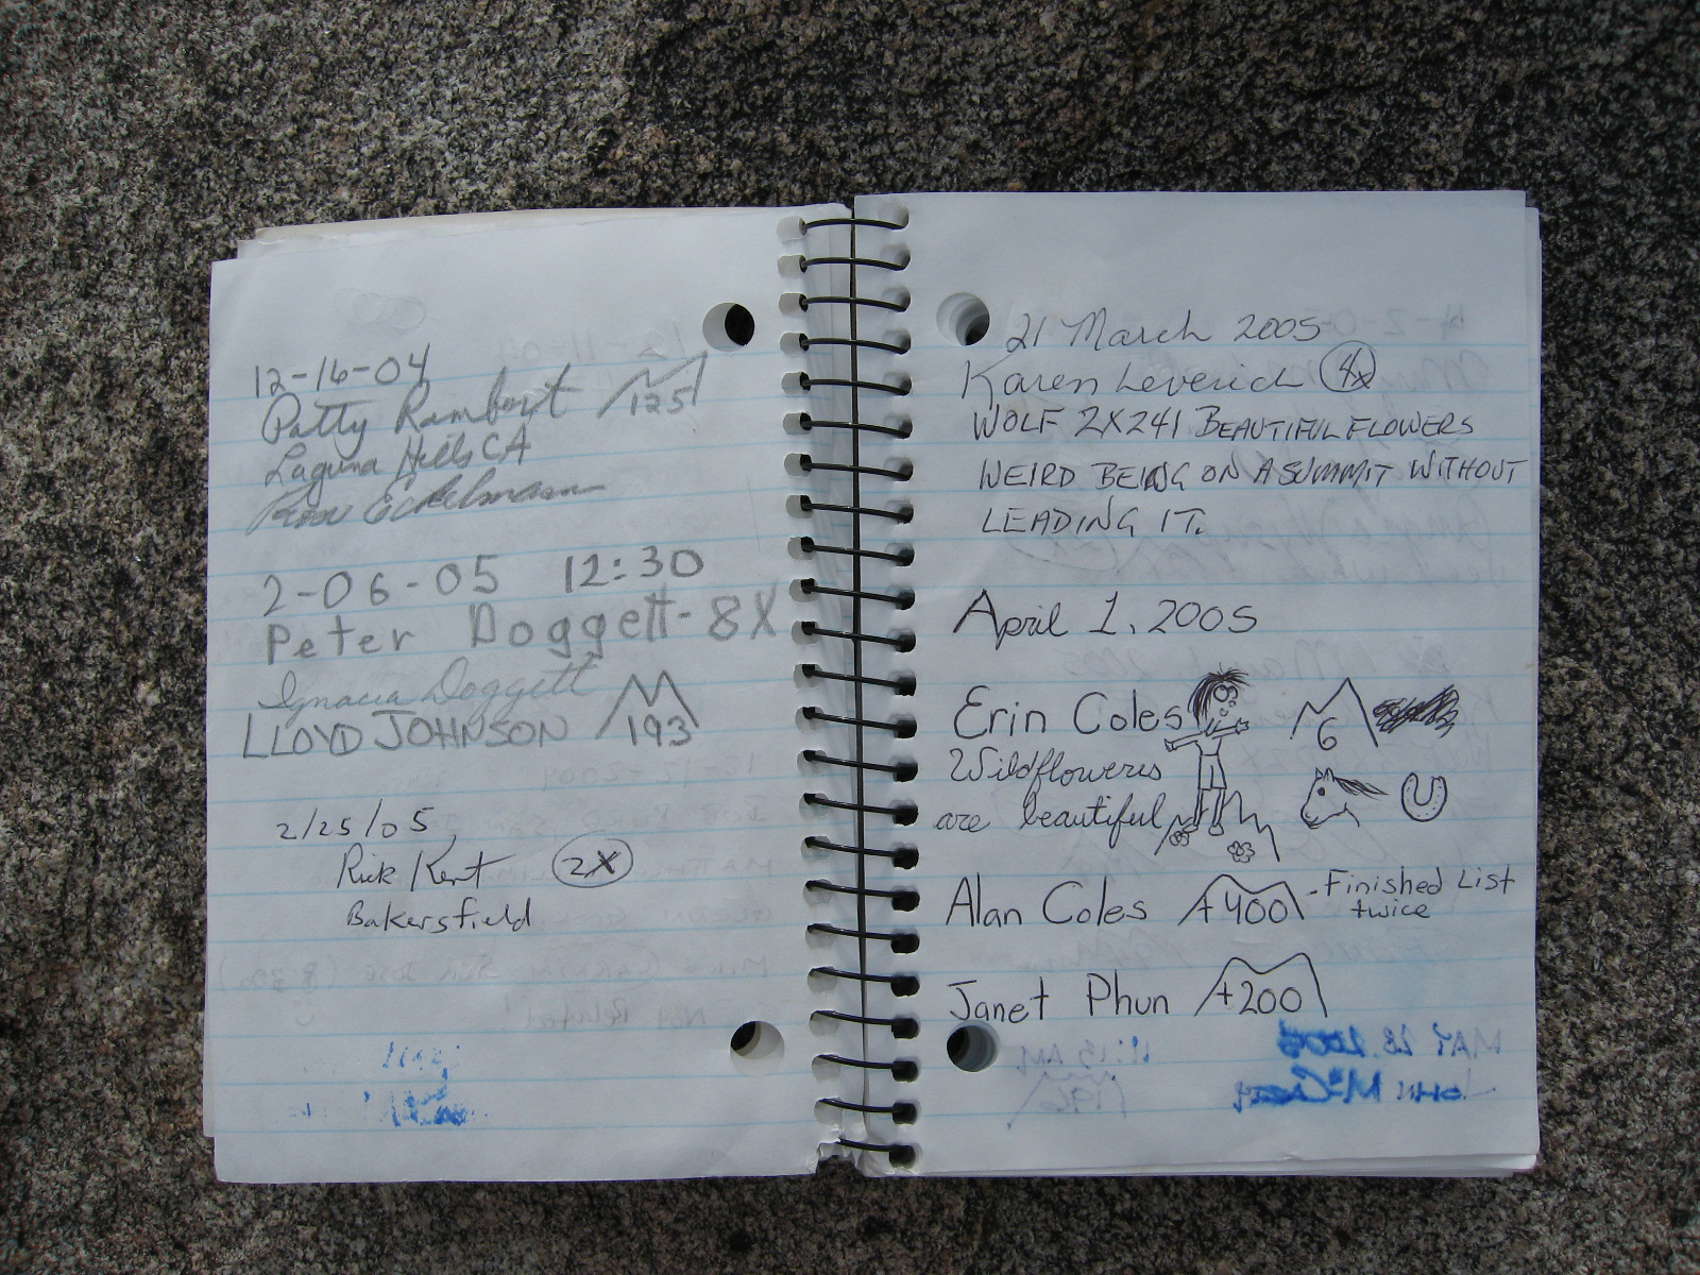 12-16-04
Patty Rambert 125
Laguna Hills CA
Eckelmann
2-06-05 12:30
Peter Doggett-8X
Ignacia Doggett
LLOYD JOHNSON 193
2/25/05,
Rick Kent 2X
Bakersfield
21 March 2005
Karen Leverich 4x
WOLF 2X241 BEAUTIFUL FLOWERS
WEIRD BEING ON A SUMMIT WITHOUT
LEADING IT.
April 1, 2005
Erin Coles 6
Wildflowers
are beautiful
Alan Coles +400 -Finished List
twice
Janet Phun +200